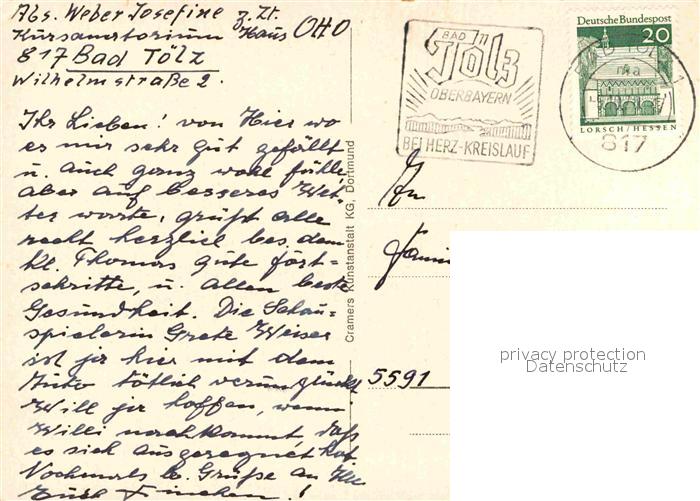 Abs. Weber Josefine z. Zt.
Kursanatorium Haus OTTO
817 Bad Tölz
Wilhelmstraße 2.
Ihr Lieben! von Hier wo
es mir sehr gut gefällt
u. auch ganz wohl fühle
aber auf besseres Wet-
ter warte, grüßt alle
recht herzlich bes. dem
kl. Thomas gute fort-
schritte, u. allen beste
Gesundheit. Die Schau-
spielerin Grete Weiser
ist ja hier mit dem
Auto tötlich verunglückt
Will ja hoffen, wenn
Willi nachkommt, daß
es sich ausgeregnet hat
Nochmals b. Grüße an Alle
Eure Finchen!
Cramers Kunstanstalt KG, Dortmund
BAD
Tölz
OBERBAYERN
BEI HERZ-KREISLAUF
Deutsche Bundespost
20
LORSCH/HESSEN
BAD TÖLZ 1
817
An
Famil
5591
privacy protection
Datenschutz